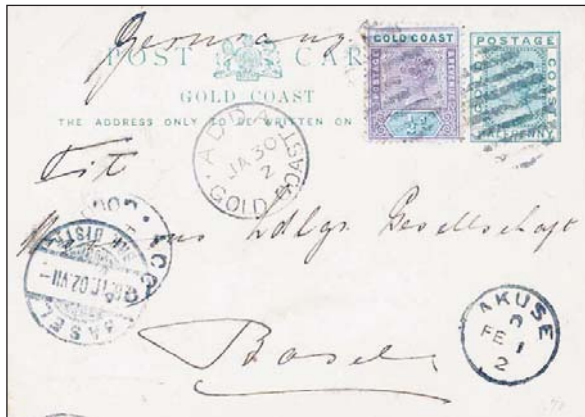 Germany
POST CARD
GOLD COAST
THE ADDRESS ONLY TO BE WRITTEN ON
GOLD COAST
POSTAGE
REVENUE
½d
POSTAGE
GOLD
COAST
HALFPENNY
ADDA
JA 30
2
GOLD COAST
Tit
Missions Hdlgs Gesellschaft
ACC
BASEL
02.VII
DISTR
Basel
AKUSE
FE 1
2